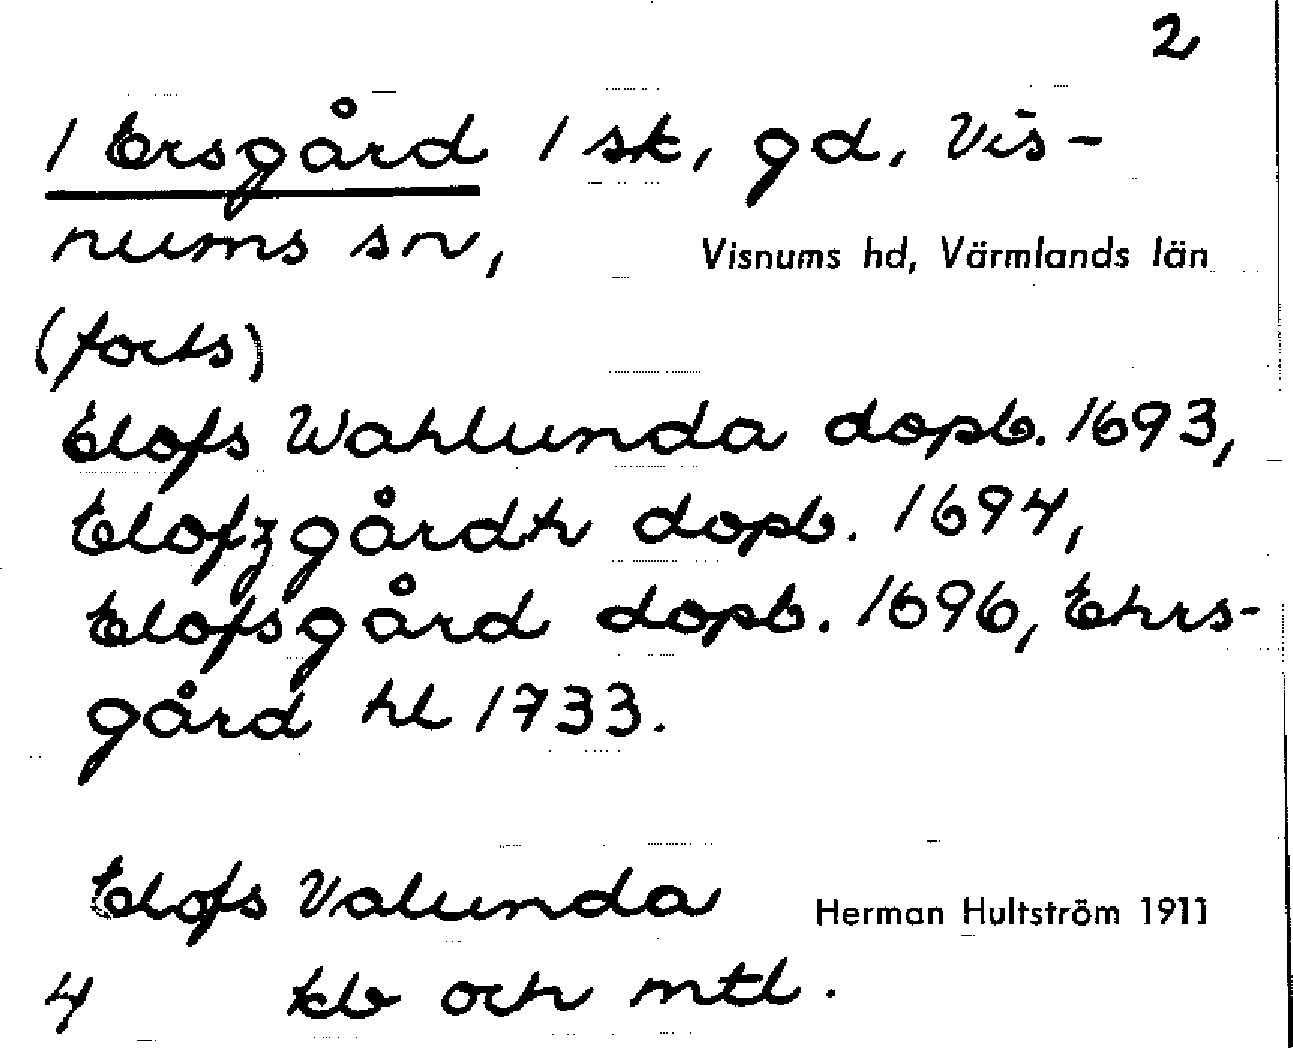 2
/ Ersgård / sk, gd, Vis-
nums sn, Visnums hd, Värmlands län
(forts)
Elofs Wahlunda dopb. 1693,
Elofzgårdh dopb. 1694,
Elofsgård dopb. 1696, Ehrs-
gård hl 1733.
Elofs Valunda Herman Hultström 1911
4 kb och mtl.